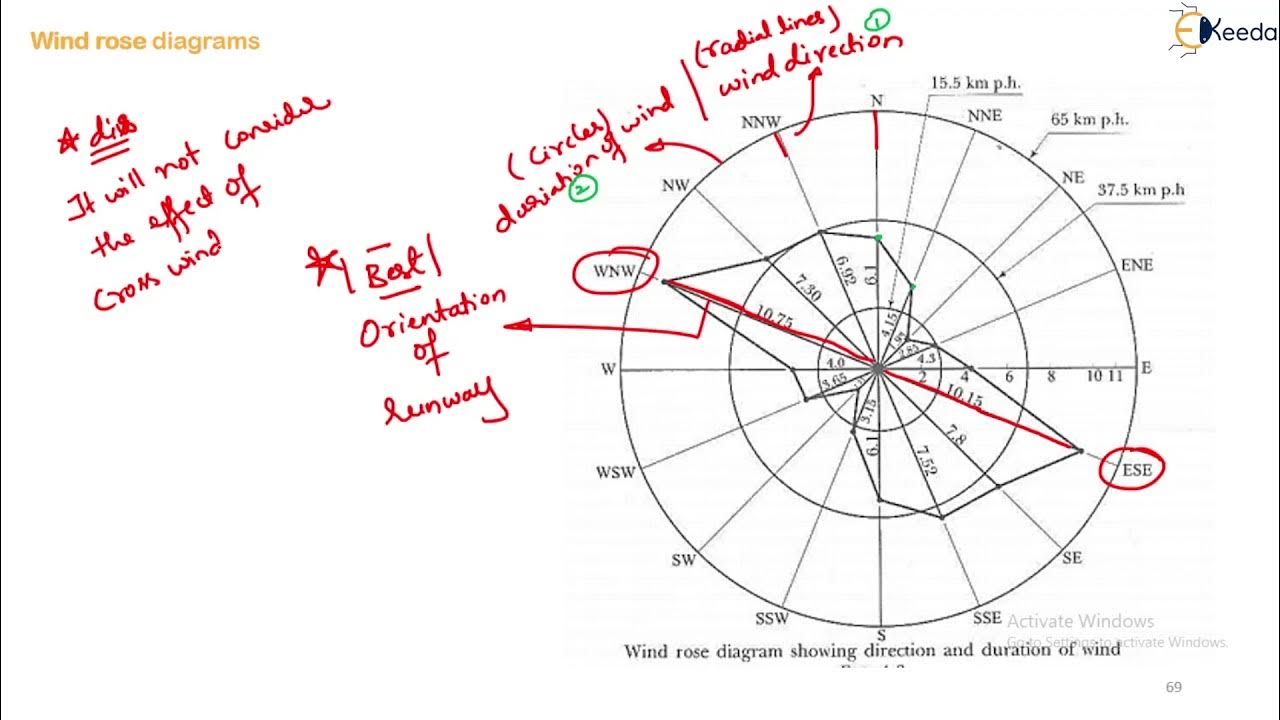 Wind rose diagrams
EKeeda
* dis
It will not consider
the effect of
cross wind
* Best
Orientation
of
runway
(radial lines) 1
wind direction
(Circles)
duration of wind
2
15.5 km p.h.
65 km p.h.
37.5 km p.h
N
NNE
NE
ENE
E
ESE
SE
SSE
S
SSW
SW
WSW
W
WNW
NW
NNW
6.1
4.15
4.3
10.15
7.8
7.52
6.1
3.15
3.65
4.0
10.75
7.30
6.92
2 4 6 8 10 11
Activate Windows
Go to Settings to activate Windows.
Wind rose diagram showing direction and duration of wind
69